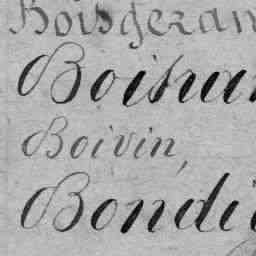 Boisgeran
Boishar
Boivin,
Bondi